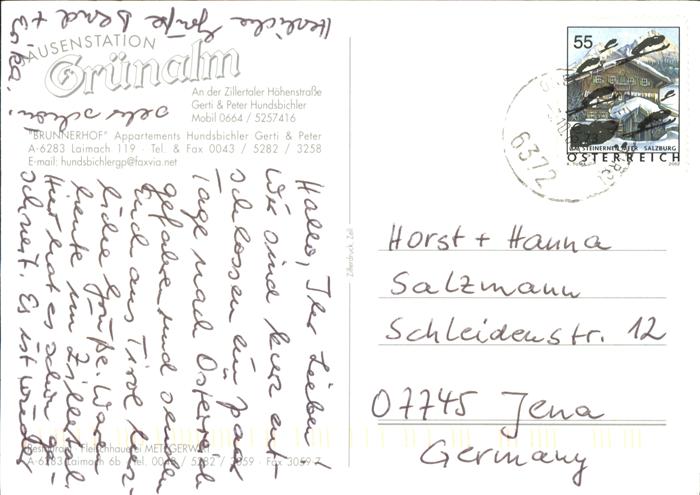 JAUSENSTATION
Grünalm
An der Zillertaler Höhenstraße
Gerti & Peter Hundsbichler
Mobil 0664 / 5257416
"BRUNNERHOF" Appartements Hundsbichler Gerti & Peter
A-6283 Laimach 119 · Tel. & Fax 0043 / 5282 / 3258
E-mail: hundsbichlergp@faxvia.net
Hallo, Ihr Lieben!
Wir sind kurz ent-
schlossen ein paar
Tage nach Österreich
gefahren und senden
Euch aus Tirol herz-
liche Grüße. Waren
heute im Zillertal
Hier hat es schon ge-
schneit. Es ist wieder
sehr schön!
Herzliche Grüße Bernd +
Zillerdruck, Zell
55
STEINERNEN MEER SALZBURG
ÖSTERREICH
2002
6372
Horst + Hanna
Salzmann
Schleidenstr. 12
07745 Jena
Germany
Restaurant - Fleischhauerei METZGERWIRT
A-6283 Laimach 6b / Tel. 0043 / 5282 / - Fax